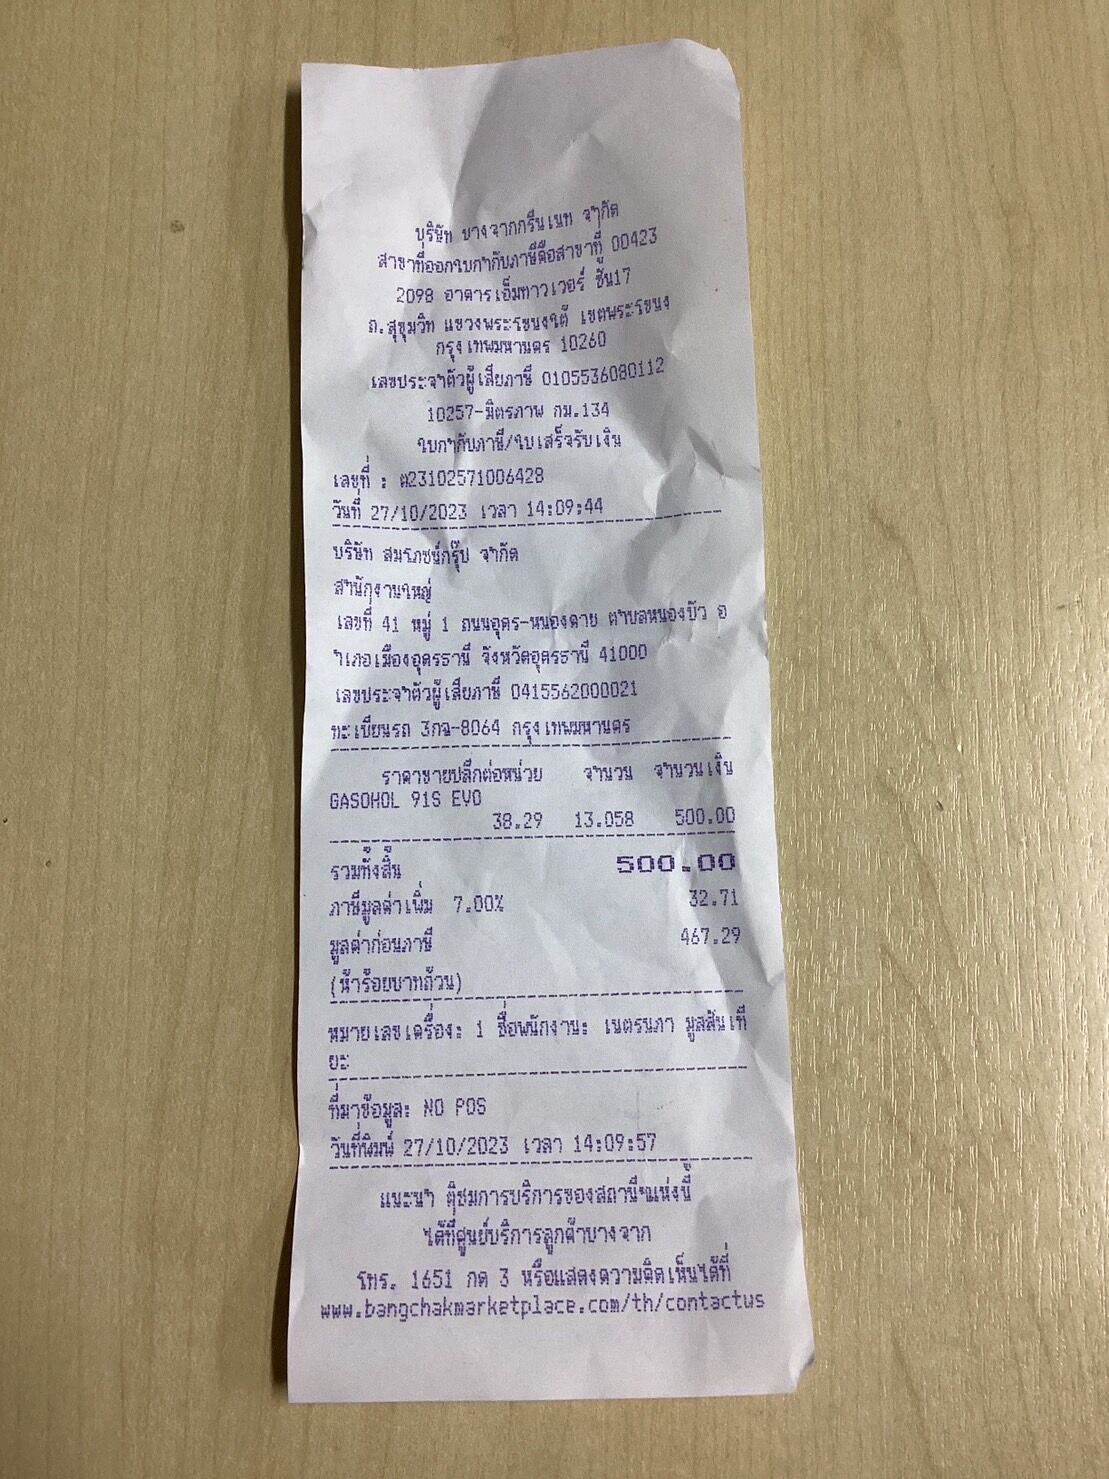 บริษัท บางจากกรีนเนท จำกัด
สาขาที่ออกใบกำกับภาษีคือสาขาที่ 00423
2098 อาคารเอ็มทาวเวอร์ ชั้น17
ถ.สุขุมวิท แขวงพระโขนงใต้ เขตพระโขนง
กรุงเทพมหานคร 10260
เลขประจำตัวผู้เสียภาษี 0105536080112
10257-มิตรภาพ กม.134
ใบกำกับภาษี/ใบเสร็จรับเงิน
เลขที่ : ต23102571006428
วันที่ 27/10/2023 เวลา 14:09:44
บริษัท สมโภชน์กรุ๊ป จำกัด
สำนักงานใหญ่
เลขที่ 41 หมู่ 1 ถนนอุดร-หนองคาย ตำบลหนองบัว อ
ำเภอเมืองอุดรธานี จังหวัดอุดรธานี 41000
เลขประจำตัวผู้เสียภาษี 0415562000021
ทะเบียนรถ 3กฉ-8064 กรุงเทพมหานคร
ราคาขายปลีกต่อหน่วย จำนวน จำนวนเงิน
GASOHOL 91S EVO
38.29 13.058 500.00
รวมทั้งสิ้น 500.00
ภาษีมูลค่าเพิ่ม 7.00% 32.71
มูลค่าก่อนภาษี 467.29
(ห้าร้อยบาทถ้วน)
หมายเลขเครื่อง: 1 ชื่อพนักงาน: เนตรนภา มูลสันเที
ยะ
ที่มาข้อมูล: NO POS
วันที่พิมพ์ 27/10/2023 เวลา 14:09:57
แนะนำ ติชมการบริการของสถานีฯแห่งนี้
ได้ที่ศูนย์บริการลูกค้าบางจาก
โทร. 1651 กด 3 หรือแสดงความคิดเห็นได้ที่
www.bangchakmarketplace.com/th/contactus